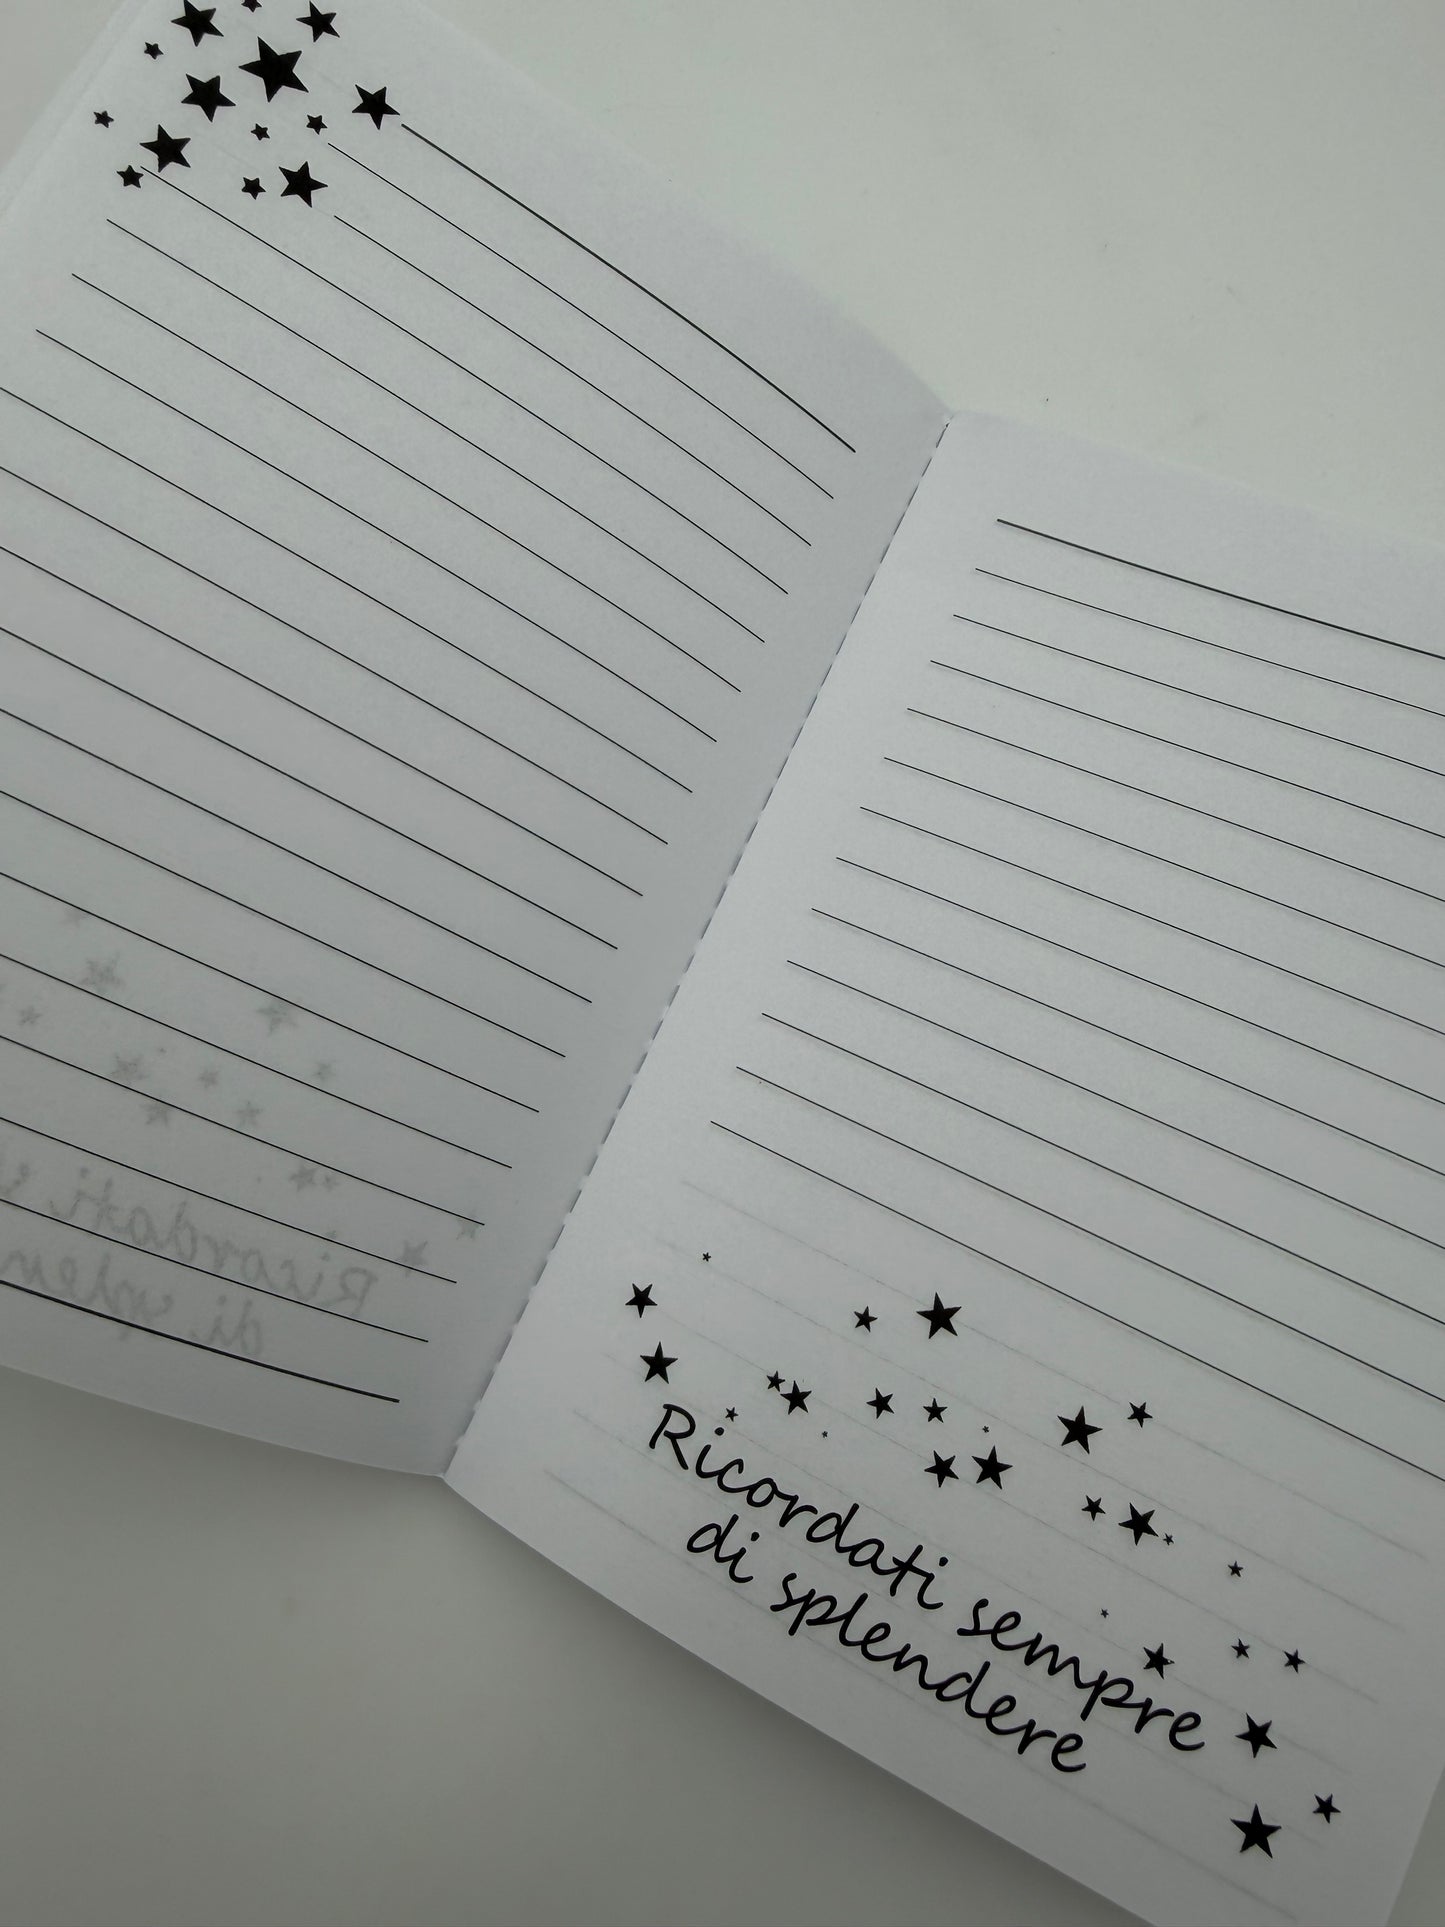 Ricordati sempre
di splendere